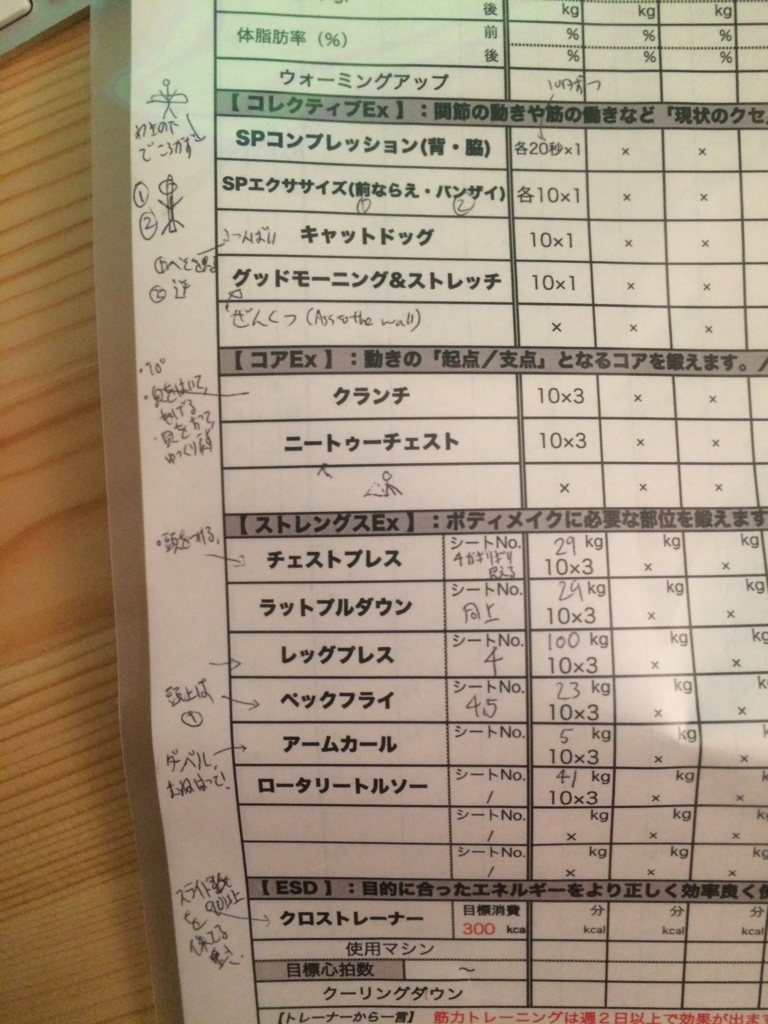 後 kg kg kg
体脂肪率 (%) 前 % % %
後 % % %
ウォーミングアップ
【 コレクティブEx 】：関節の動きや筋の働きなど「現状のクセ
SPコンプレッション(背・脇) 各20秒×1 × ×
でころがす
SPエクササイズ(前ならえ・バンザイ) 各10×1 × ×
① ②
①
②
よつんばい キャットドッグ 10×1 × ×
①へそを見る
② 逆
グッドモーニング&ストレッチ 10×1 × ×
ぜんくつ (Ass to the wall) × × ×
【 コアEx 】：動きの「起点／支点」となるコアを鍛えます。／
クランチ 10×3 × ×
ニートゥーチェスト 10×3 × ×
× × ×
【 ストレングスEx 】：ボディメイクに必要な部位を鍛えます
チェストプレス シートNo. 4がぎりぎり見える 29 kg kg kg
10×3 × ×
ラットプルダウン シートNo. 同上 29 kg kg kg
10×3 × ×
レッグプレス シートNo. 4 100 kg kg kg
10×3 × ×
頭上は
①
ペックフライ シートNo. 4.5 23 kg kg kg
10×3 × ×
ダンベル、
むねはって!
アームカール シートNo. 5 kg kg kg
10×3 × ×
ロータリートルソー シートNo. / 41 kg kg kg
10×3 × ×
シートNo. / kg kg kg
× × ×
シートNo. / kg kg kg
× × ×
【 ESD 】：目的に合ったエネルギーをより正しく効率良く
スライド数
を 90以上
クロストレーナー 目標消費 分 分 分
300 kcal kcal kcal kcal
使用マシン
目標心拍数 〜
クーリングダウン
【トレーナーから一言】 筋力トレーニングは週2日以上で効果が出ま